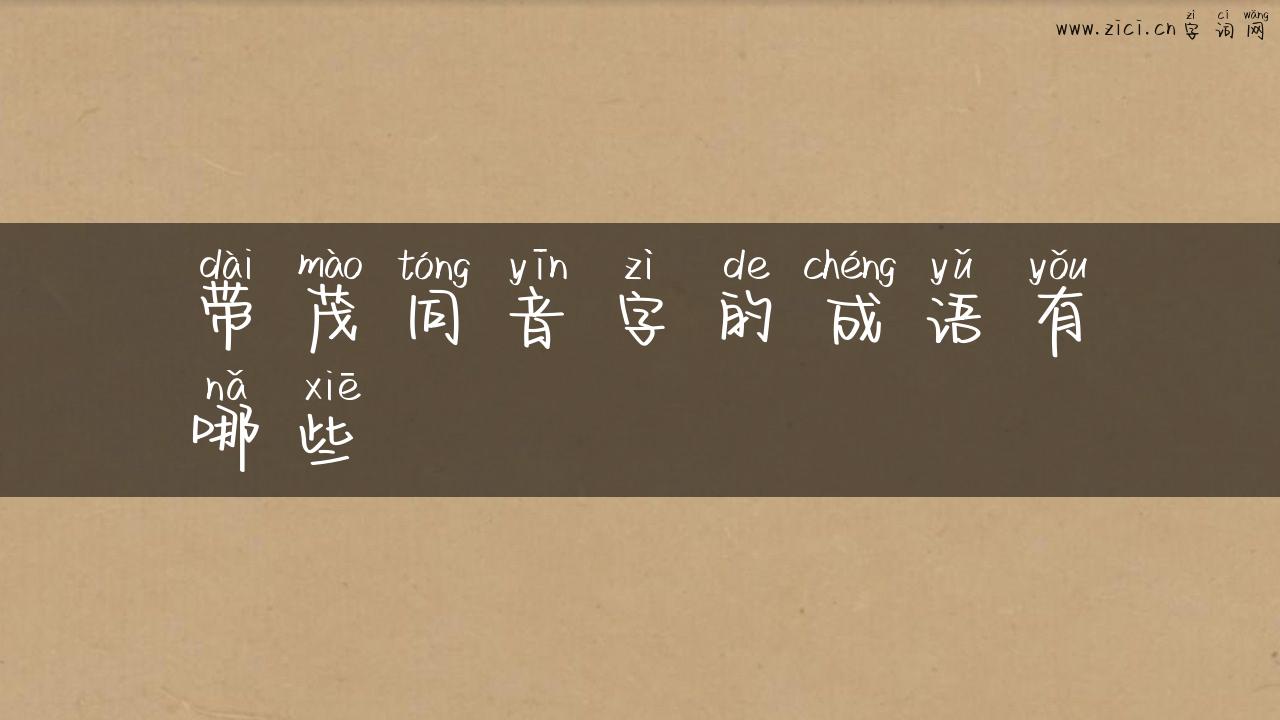 zì cí wǎng
www.zici.cn 字词网
dài mào tóng yīn zì de chéng yǔ yǒu
带茂同音字的成语有
nǎ xiē
哪些